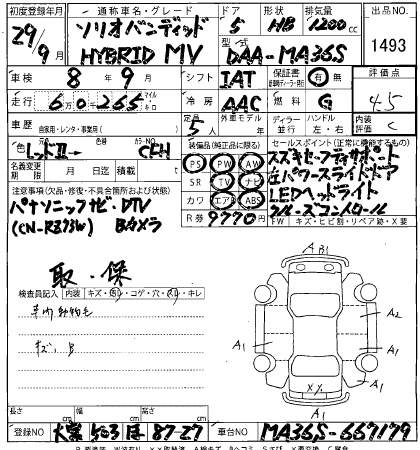 初度登録年月 通称車名・グレード ドア 形状 排気量 出品NO
29/9月 ソリオバンディッド HYBRID MV 5 HB 1200cc
型式 DAA-MA36S 1493
車検 8年9月 シフト IAT 保証書 有 無 評価点
走行 60265 マイル キロ 冷房 AAC 燃料 G 4.5
車歴 自家用・レンタ・事業用( ) 定員 5人 外車モデル 年 ディーラー 並行 ハンドル 左・右 内装 C
色 レッドⅡ→ 色替 カラーNO CFH 装備品(純正品に限る) セールスポイント(正常に機能する)
名義変更期限 月 日迄 積載 PS PW AW スズキセーフティサポート
注意事項(欠品・修復・不具合箇所および状態) SR TV ナビ 左パワースライドドア
パナソニックナビ・DTV カワ エアB ABS LEDヘッドライト
(CN-RZ73W) Bカメラ R券 9770円 クルーズコントロール
FW キズ・ヒビ割・リペア跡・X要
取・保
検査員記入 内装 キズ・汚レ・コゲ・穴・スレ・キレ
車内動物毛
キズ、B
A B1
A2
A1
A1
XX
A1
A1
長さ cm 幅 cm 高さ cm
登録NO 大宮 503 ほ 87-27 車台NO MA36S-667179